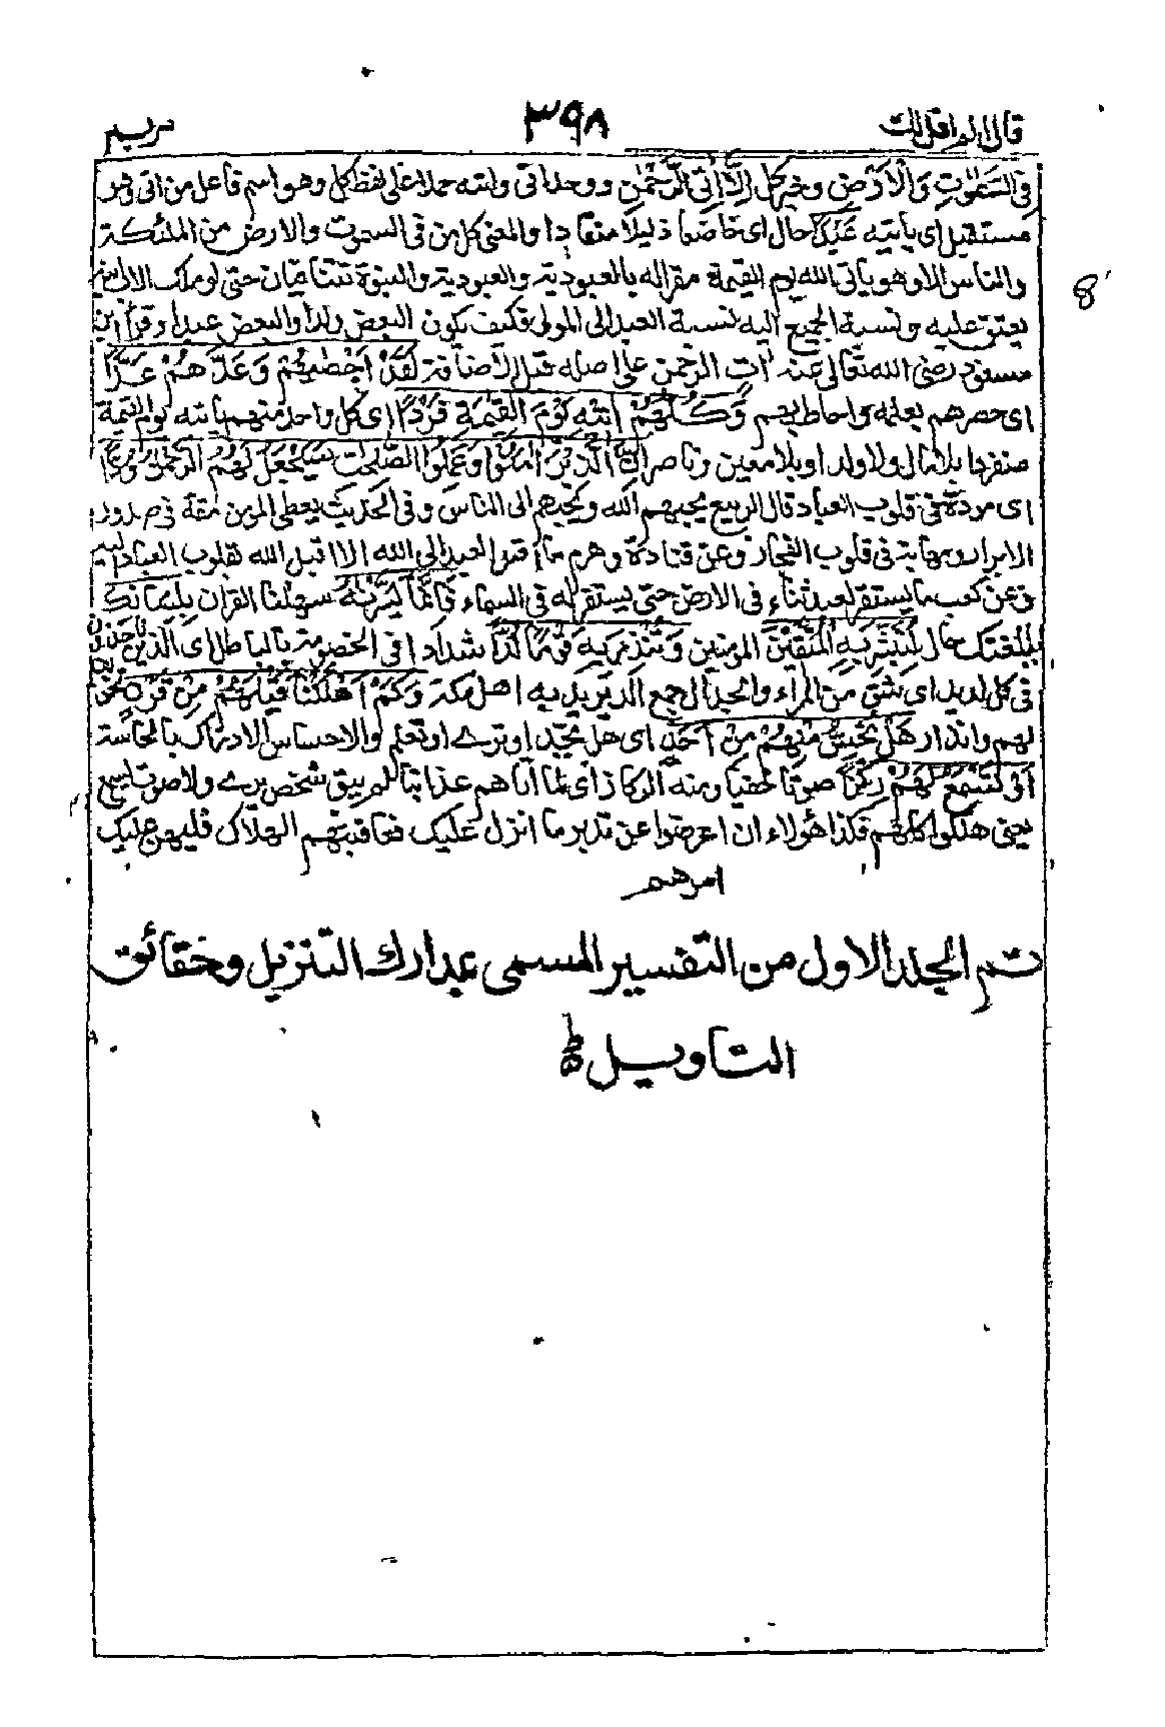 قال الم اقل لك ٣٩٨ مريم
فى السَّمٰوٰتِ وَالْاَرْضِ وخبر كل اِلَّآ اٰتِى الرَّحْمٰنِ ووحد اتى واتيه حملا على لفظ كل وهو اسم فاعل من اتى وهو
مستقبل اى ياتيه عَبْدًا حال اى خاضعا ذليلا منقادا والمعنى كل من فى السموت والارض من الملئكة
والناس الا وهو ياتى الله يوم القيمة مقرا له بالعبودية والعبودية والبنوة تتنافيان حتى لو ملك الاب ابنه
يعتق عليه ونسبة الجميع اليه نسبة العبد الى المولى فكيف يكون البعض ولدا والبعض عبدا وقرأ ابن
مسعود رضى الله تعالى عنه اٰت الرحمن على اصله قبل الاضافة لَقَدْ اَحْصٰىهُمْ وَعَدَّهُمْ عَدًّا
اى حصرهم بعلمه واحاط بهم وَكُلُّهُمْ اٰتِيْهِ يَوْمَ الْقِيٰمَةِ فَرْدًا اى كل واحد منهم ياتيه يوم القيمة
منفردا بلا مال ولا ولد او بلا معين وناصر اِنَّ الَّذِيْنَ اٰمَنُوْا وَعَمِلُوا الصّٰلِحٰتِ سَيَجْعَلُ لَهُمُ الرَّحْمٰنُ وُدًّا
اى مودة فى قلوب العباد قال الربيع يحبهم الله ويحببهم الى الناس وفى الحديث يعطى المومن مقة فى صدور
الابرار ومهابة فى قلوب الفجار وعن قتادة وهرم ما اقبل العبد الى الله الا اقبل الله بقلوب العباد اليه
وعن كعب ما يستقر لعبد ثناء فى الارض حتى يستقر له فى السماء فَاِنَّمَا يَسَّرْنٰهُ سهلنا القران بِلِسَانِكَ
بلغتك حال لِتُبَشِّرَ بِهِ الْمُتَّقِيْنَ المومنين وَتُنْذِرَ بِهٖ قَوْمًا لُّدًّا شدادا فى الخصومة بالباطل اى الذين ياخذون
فى كل لديد اى شق من المراء والجدال جمع الد يريد به اهل مكة وَكَمْ اَهْلَكْنَا قَبْلَهُمْ مِّنْ قَرْنٍ تخويف
لهم وانذار هَلْ تُحِسُّ مِنْهُمْ مِّنْ اَحَدٍ اى هل تجد او ترى او تعلم والاحساس الادراك بالحاسة
اَوْ تَسْمَعُ لَهُمْ رِكْزًا صوتا خفيا ومنه الركاز اى لما اتاهم عذابنا لم يبق شخص يرى ولا صوت يسمع
يعنى هلكوا كلهم فكذا هؤلاء ان اعرضوا عن تدبر ما انزل عليك فعاقبتهم الهلاك فليهن عليك
امرهم
تم الجلد الاول من التفسير المسمى بمدارك التنزيل وحقائق
التاويل
8